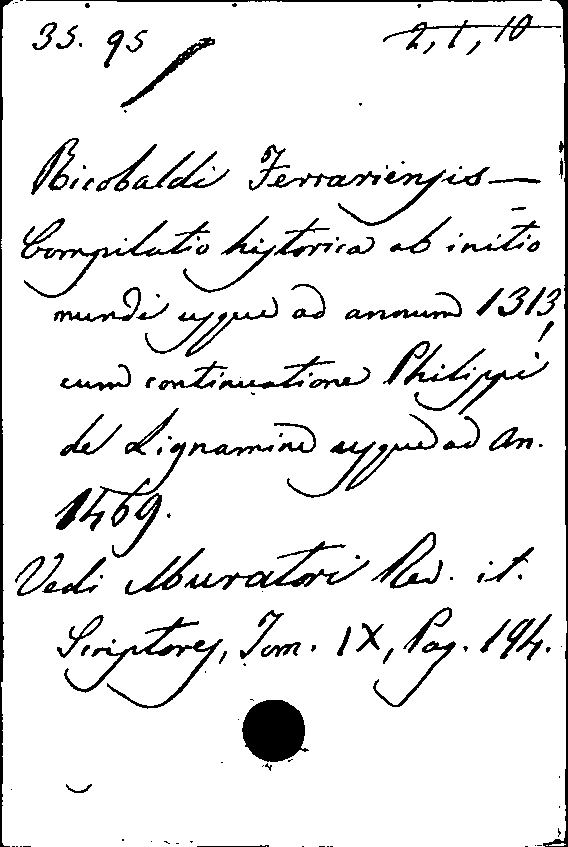 35. 95 2, 1, 10
Ricobaldi Ferrariensis —
Compilatio historica ab initio
mundi usque ad annum 1313,
cum continuatione Philippi
de Lignamine usque ad an.
1469.
Vedi Muratori Rer. it.
Scriptores, Tom. IX, Pag. 194.